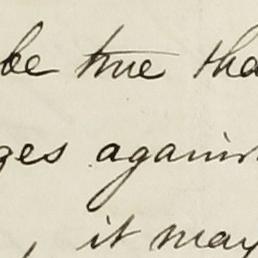 be true tha
ges agains
, it may